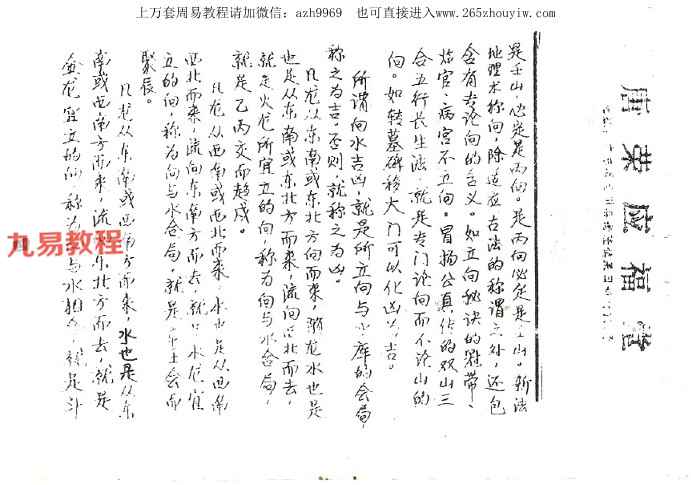 上万套周易教程请加微信：azh9969　也可直接进入www.265zhouyiw.com
唐荣应福堂
是壬山，必定是丙向。是丙向必定是壬山。新法
地理术称向，除适应古法的称谓之外，还包
含有专论向的含义。如立向秘诀的冠带、
临官、病宫不立向。冒扬公真传的双山三
合五行长生法，就是专门论向而不论山的
向。如转墓碑移大门可以化凶为吉。
所谓向水吉凶，就是所立向与水库的会局，
称之为吉，否则，就称之为凶。
凡龙从东南或东北方向而来，随龙水也是
也是从东南或东北方而来，流向西北而去，
就是火龙所宜立的向，称为向与水合局，
就是乙丙交而趋戌。
凡龙从西南或西北而来，水也是从西南
西北而来，流向东南方而去，就是水龙宜
立的向，称为向与水合局。就是辛壬会而
聚辰。
凡龙从东南或西南方而来，水也是从东
南或西南方而来，流东北方而去，就是
金龙宜立的向，称为与水，就是斗
九易教程